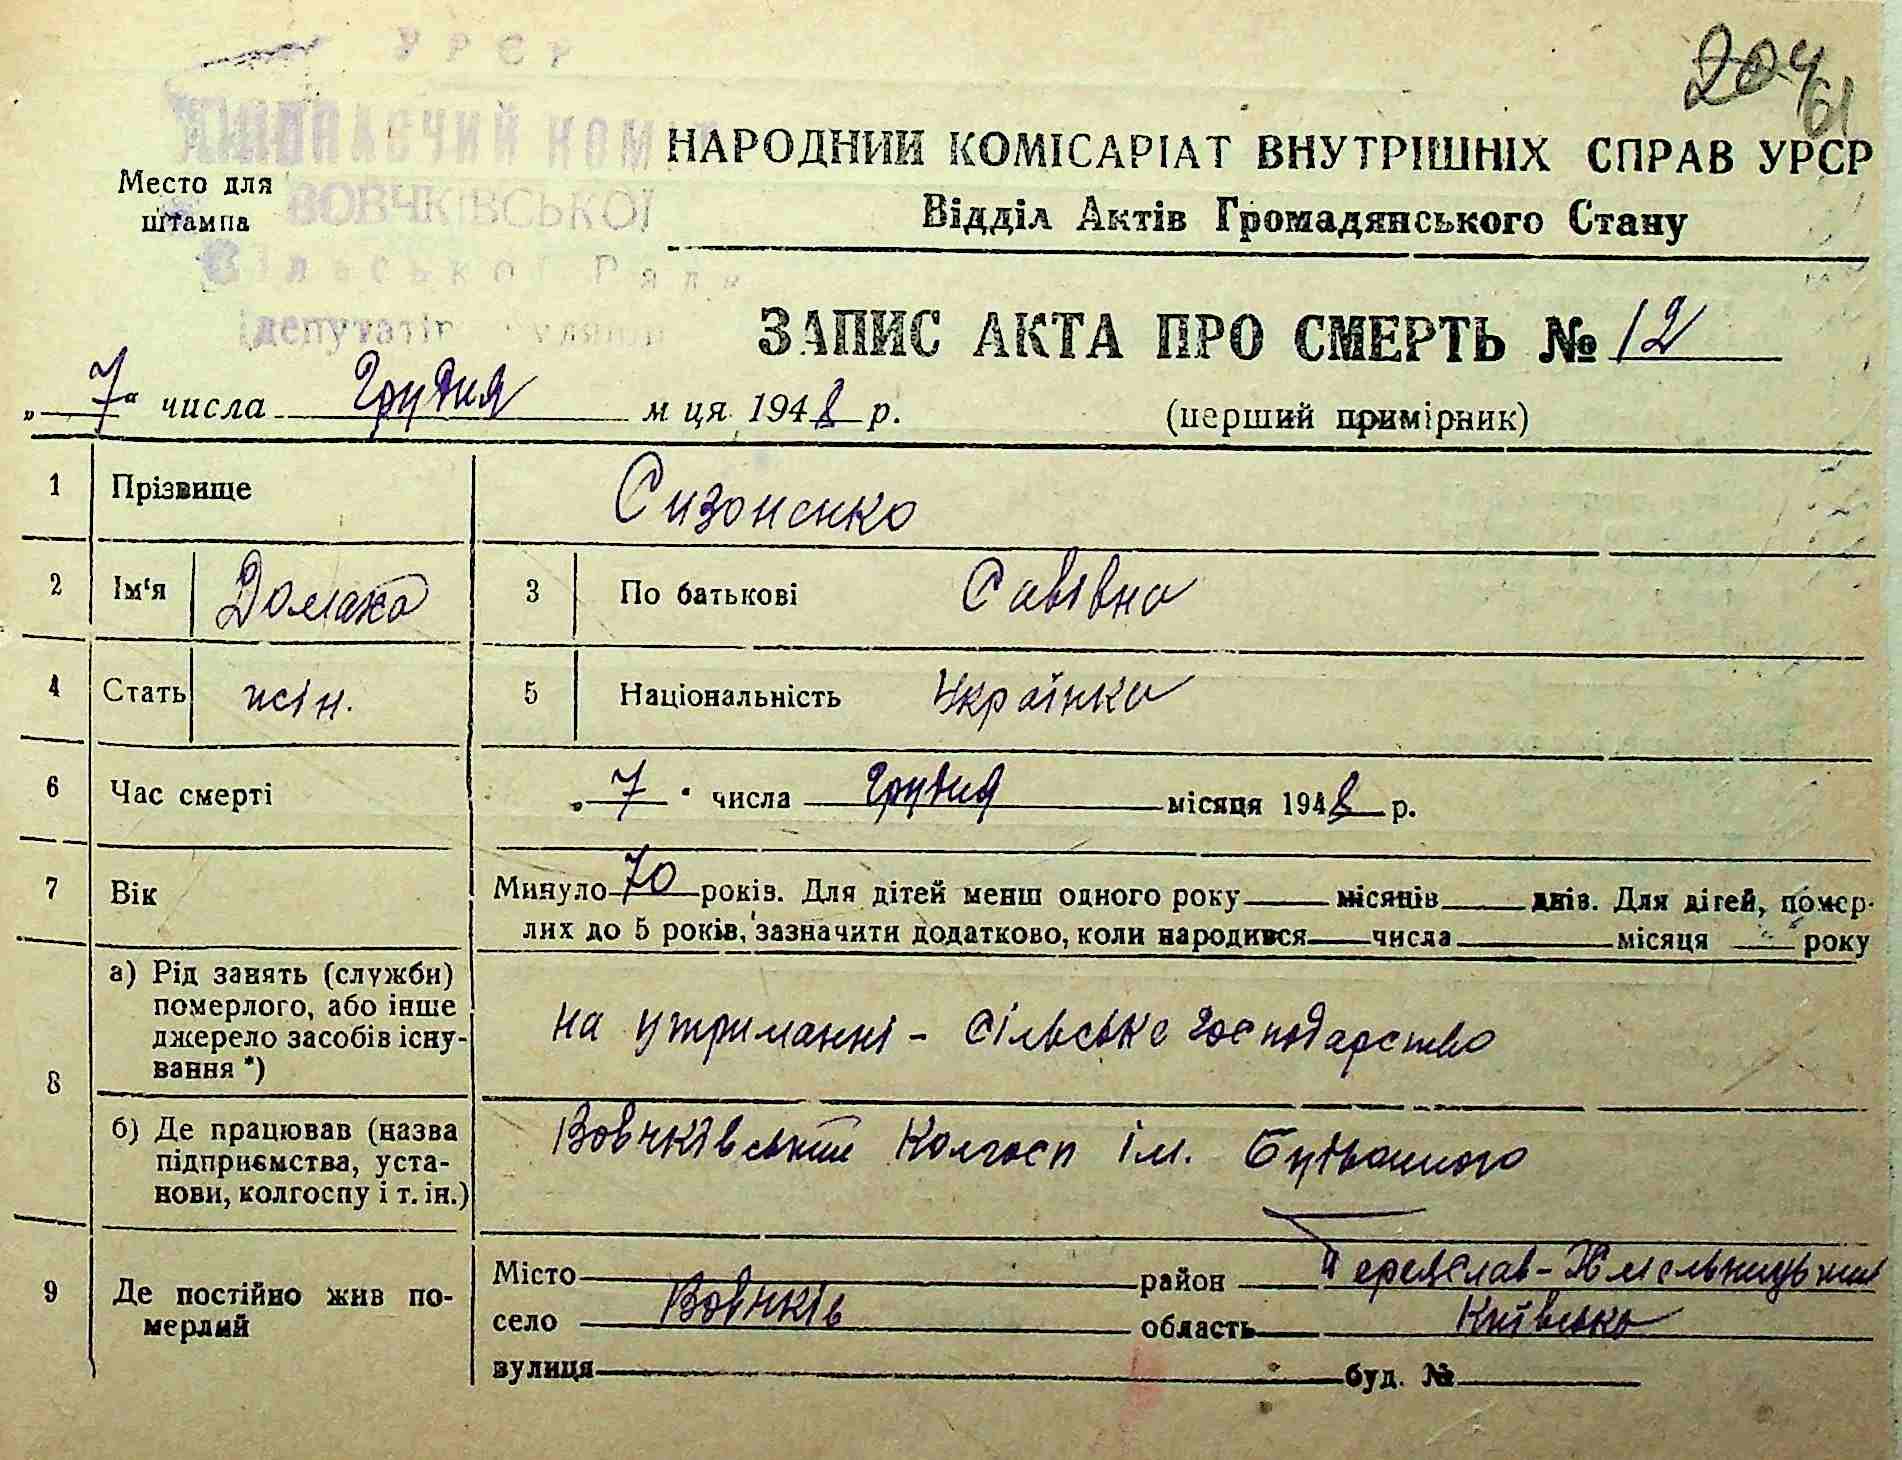 УРСР
ВИКОНАВЧИЙ КОМІТ
ВОВЧКІВСЬКОЇ
Сільської Ради
депутатів
204
61
Место для
штампа
НАРОДНИЙ КОМІСАРІАТ ВНУТРІШНІХ СПРАВ УРСР
Відділ Актів Громадянського Стану
ЗАПИС АКТА ПРО СМЕРТЬ № 12
„7“ числа Грудня м ця 1948 р. (перший примірник)
1 Прізвище Сизоненко
2 Ім'я Домаха 3 По батькові Савівна
4 Стать жін. 5 Національність Українка
6 Час смерті „7“ числа Грудня місяця 1948 р.
7 Вік Минуло 70 років. Для дітей менш одного року місяців днів. Для дітей, помер-
лих до 5 років, зазначити додатково, коли народився числа місяця року
8 а) Рід занять (служби)
померлого, або інше
джерело засобів існу-
вання *)
на утриманні - сільське господарство
б) Де працював (назва
підприємства, уста-
нови, колгоспу і т. ін.)
Вовчківський Колгосп ім. Будьонного
9 Де постійно жив по-
мерлий
Місто район Переяслав-Хмельницький
село Вовчків область Київська
вулиця буд. №